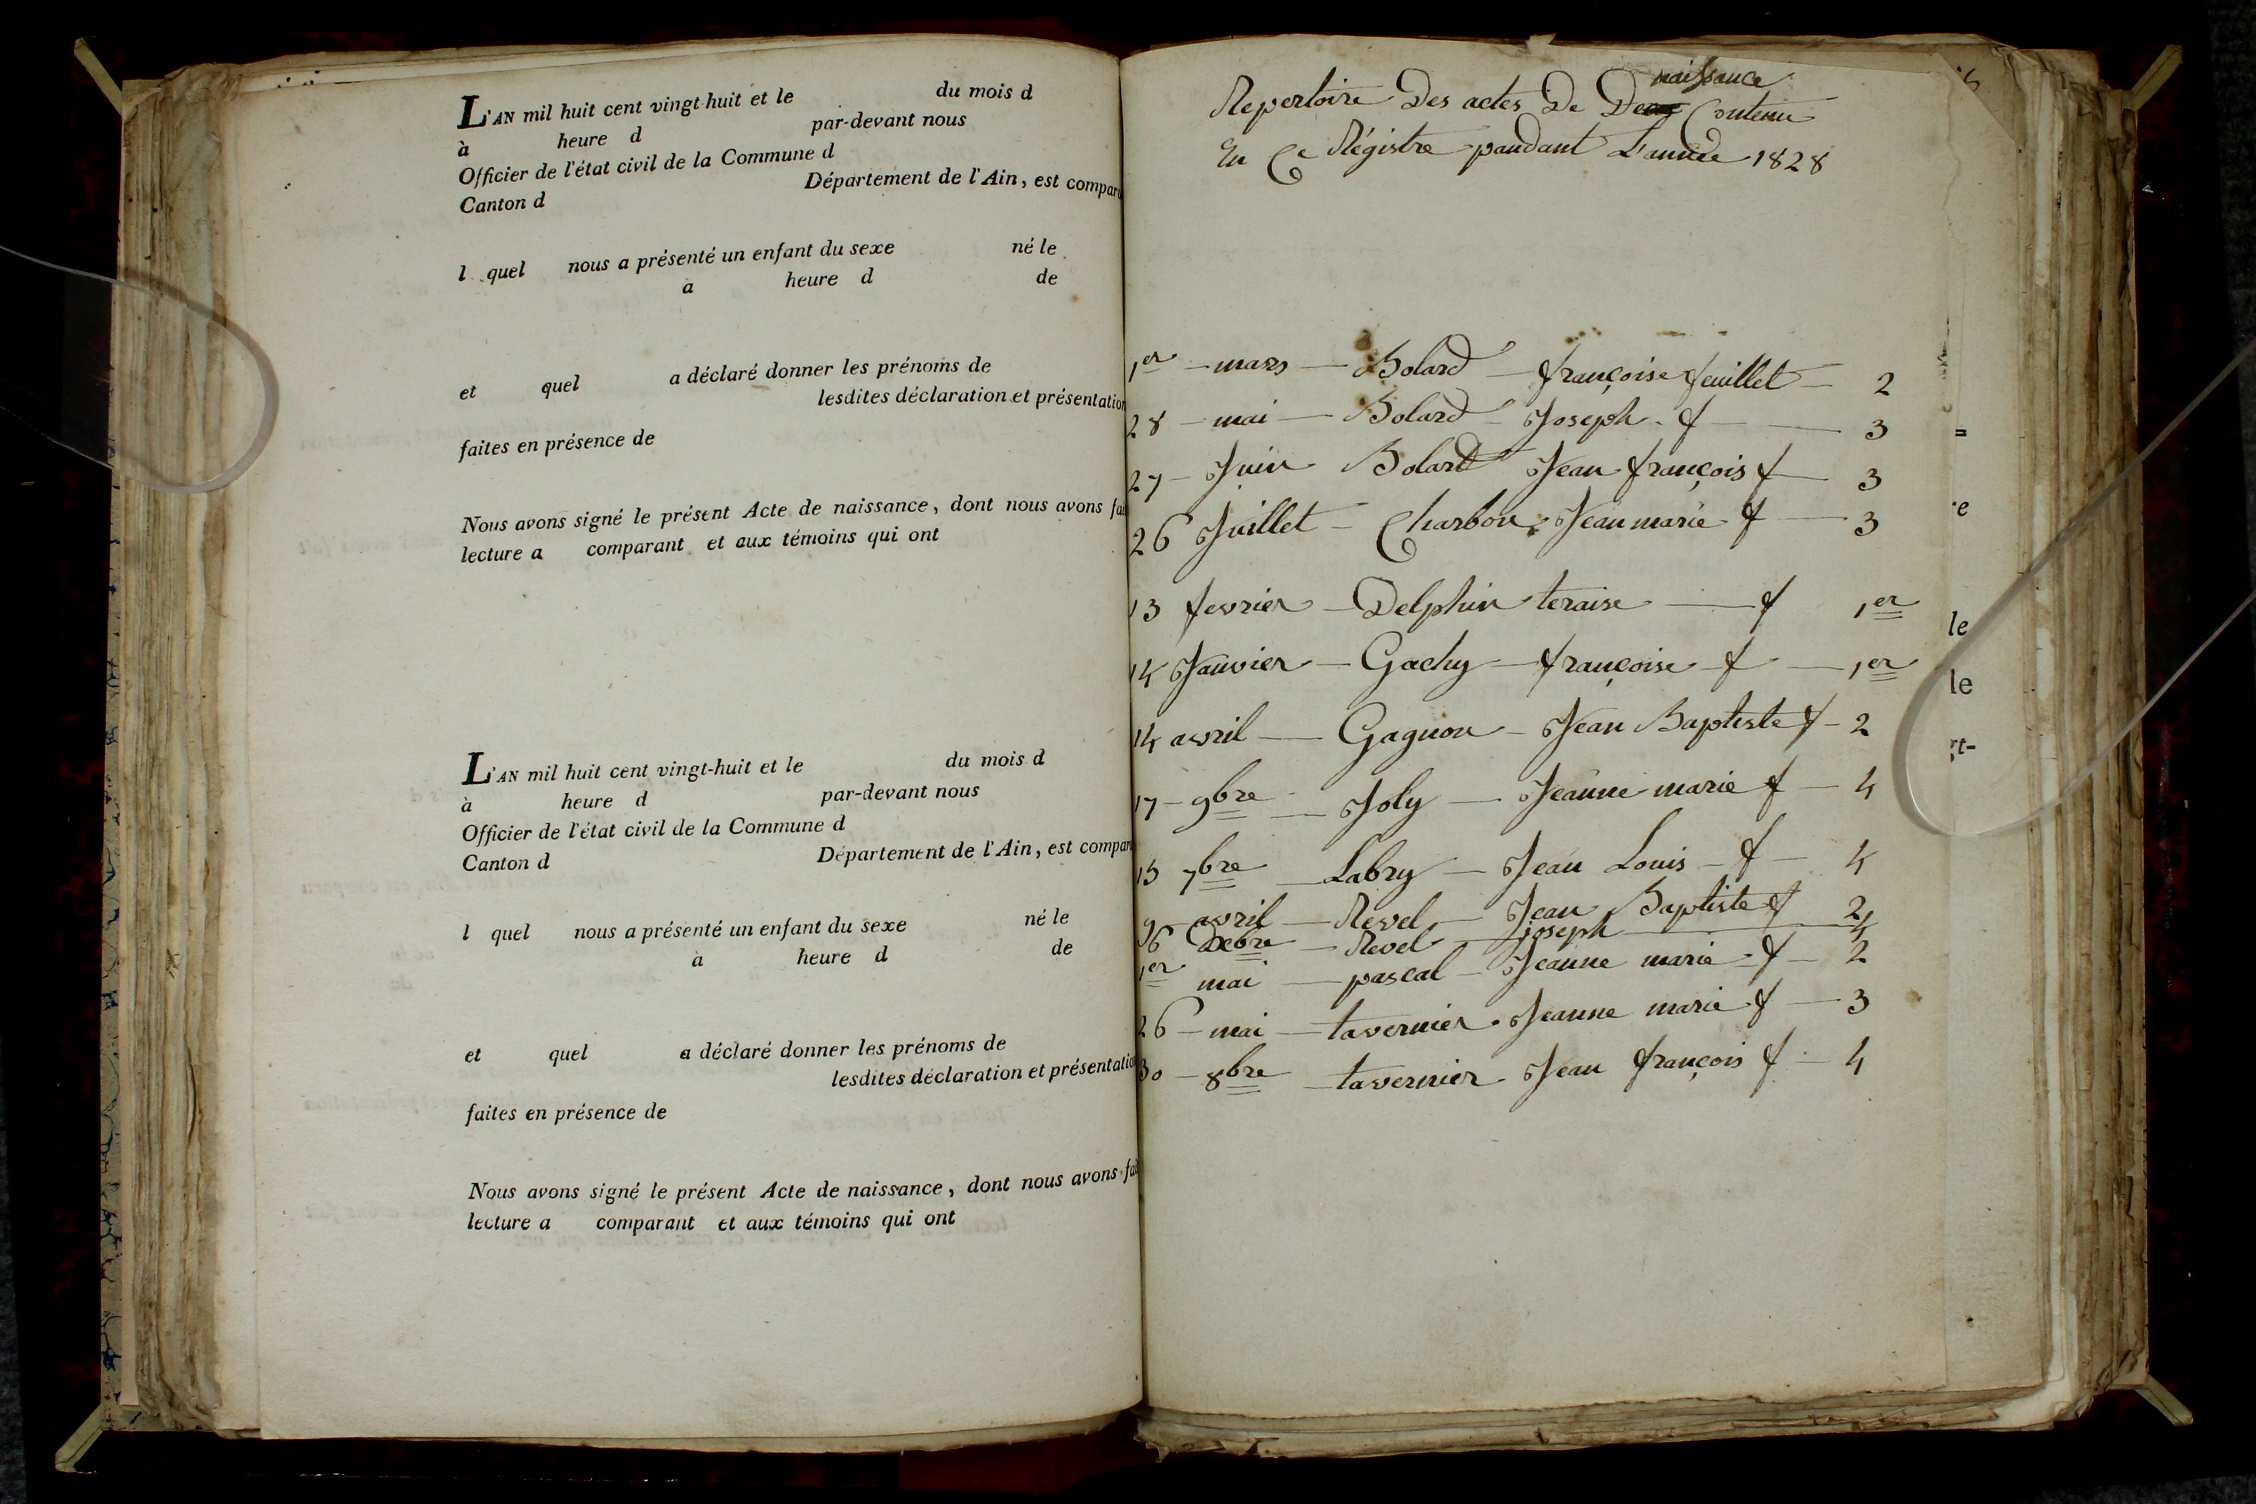 L'AN mil huit cent vingt-huit et le du mois d
à heure d par-devant nous
Officier de l'état civil de la Commune d
Canton d Département de l'Ain, est comparu
l quel nous a présenté un enfant du sexe né le
a heure d de
et quel a déclaré donner les prénoms de
lesdites déclaration et présentation
faites en présence de
Nous avons signé le présent Acte de naissance, dont nous avons fai
lecture a comparant et aux témoins qui ont
L'AN mil huit cent vingt-huit et le du mois d
à heure d par-devant nous
Officier de l'état civil de la Commune d
Canton d Département de l'Ain, est compar
l quel nous a présenté un enfant du sexe né le
à heure d de
et quel a déclaré donner les prénoms de
lesdites déclaration et présentatio
faites en présence de
Nous avons signé le présent Acte de naissance, dont nous avons fai
lecture a comparant et aux témoins qui ont
naissance
Repertoire Des actes De Contenu
En Ce Régistre pandant L'année 1828
1er - mars - Bolard - françoise feuillet - 2
28 - mai - Bolard - Joseph - f - 3
27 - Juin Bolard Jean françois f - 3
26 Juillet - Charbon - Jean marie f - 3
13 fevrier - Delphin teraise - f 1er
14 Janvier - Gachy - françoise f - 1er
14 avril - Gagnon - Jean Baptiste f - 2
17 - 9bre - Joly - Jeanne marie f - 4
15 7bre - Labry - Jean Louis - f - 4
9 - avril - Revel - Jean Baptiste f 2
6 Debre - Revel - joseph - 4
1er mai - pascal - Jeanne marie - f - 2
26 - mai - tavernier - Jeanne marie f - 3
30 - 8bre - tavernier Jean françois f - 4